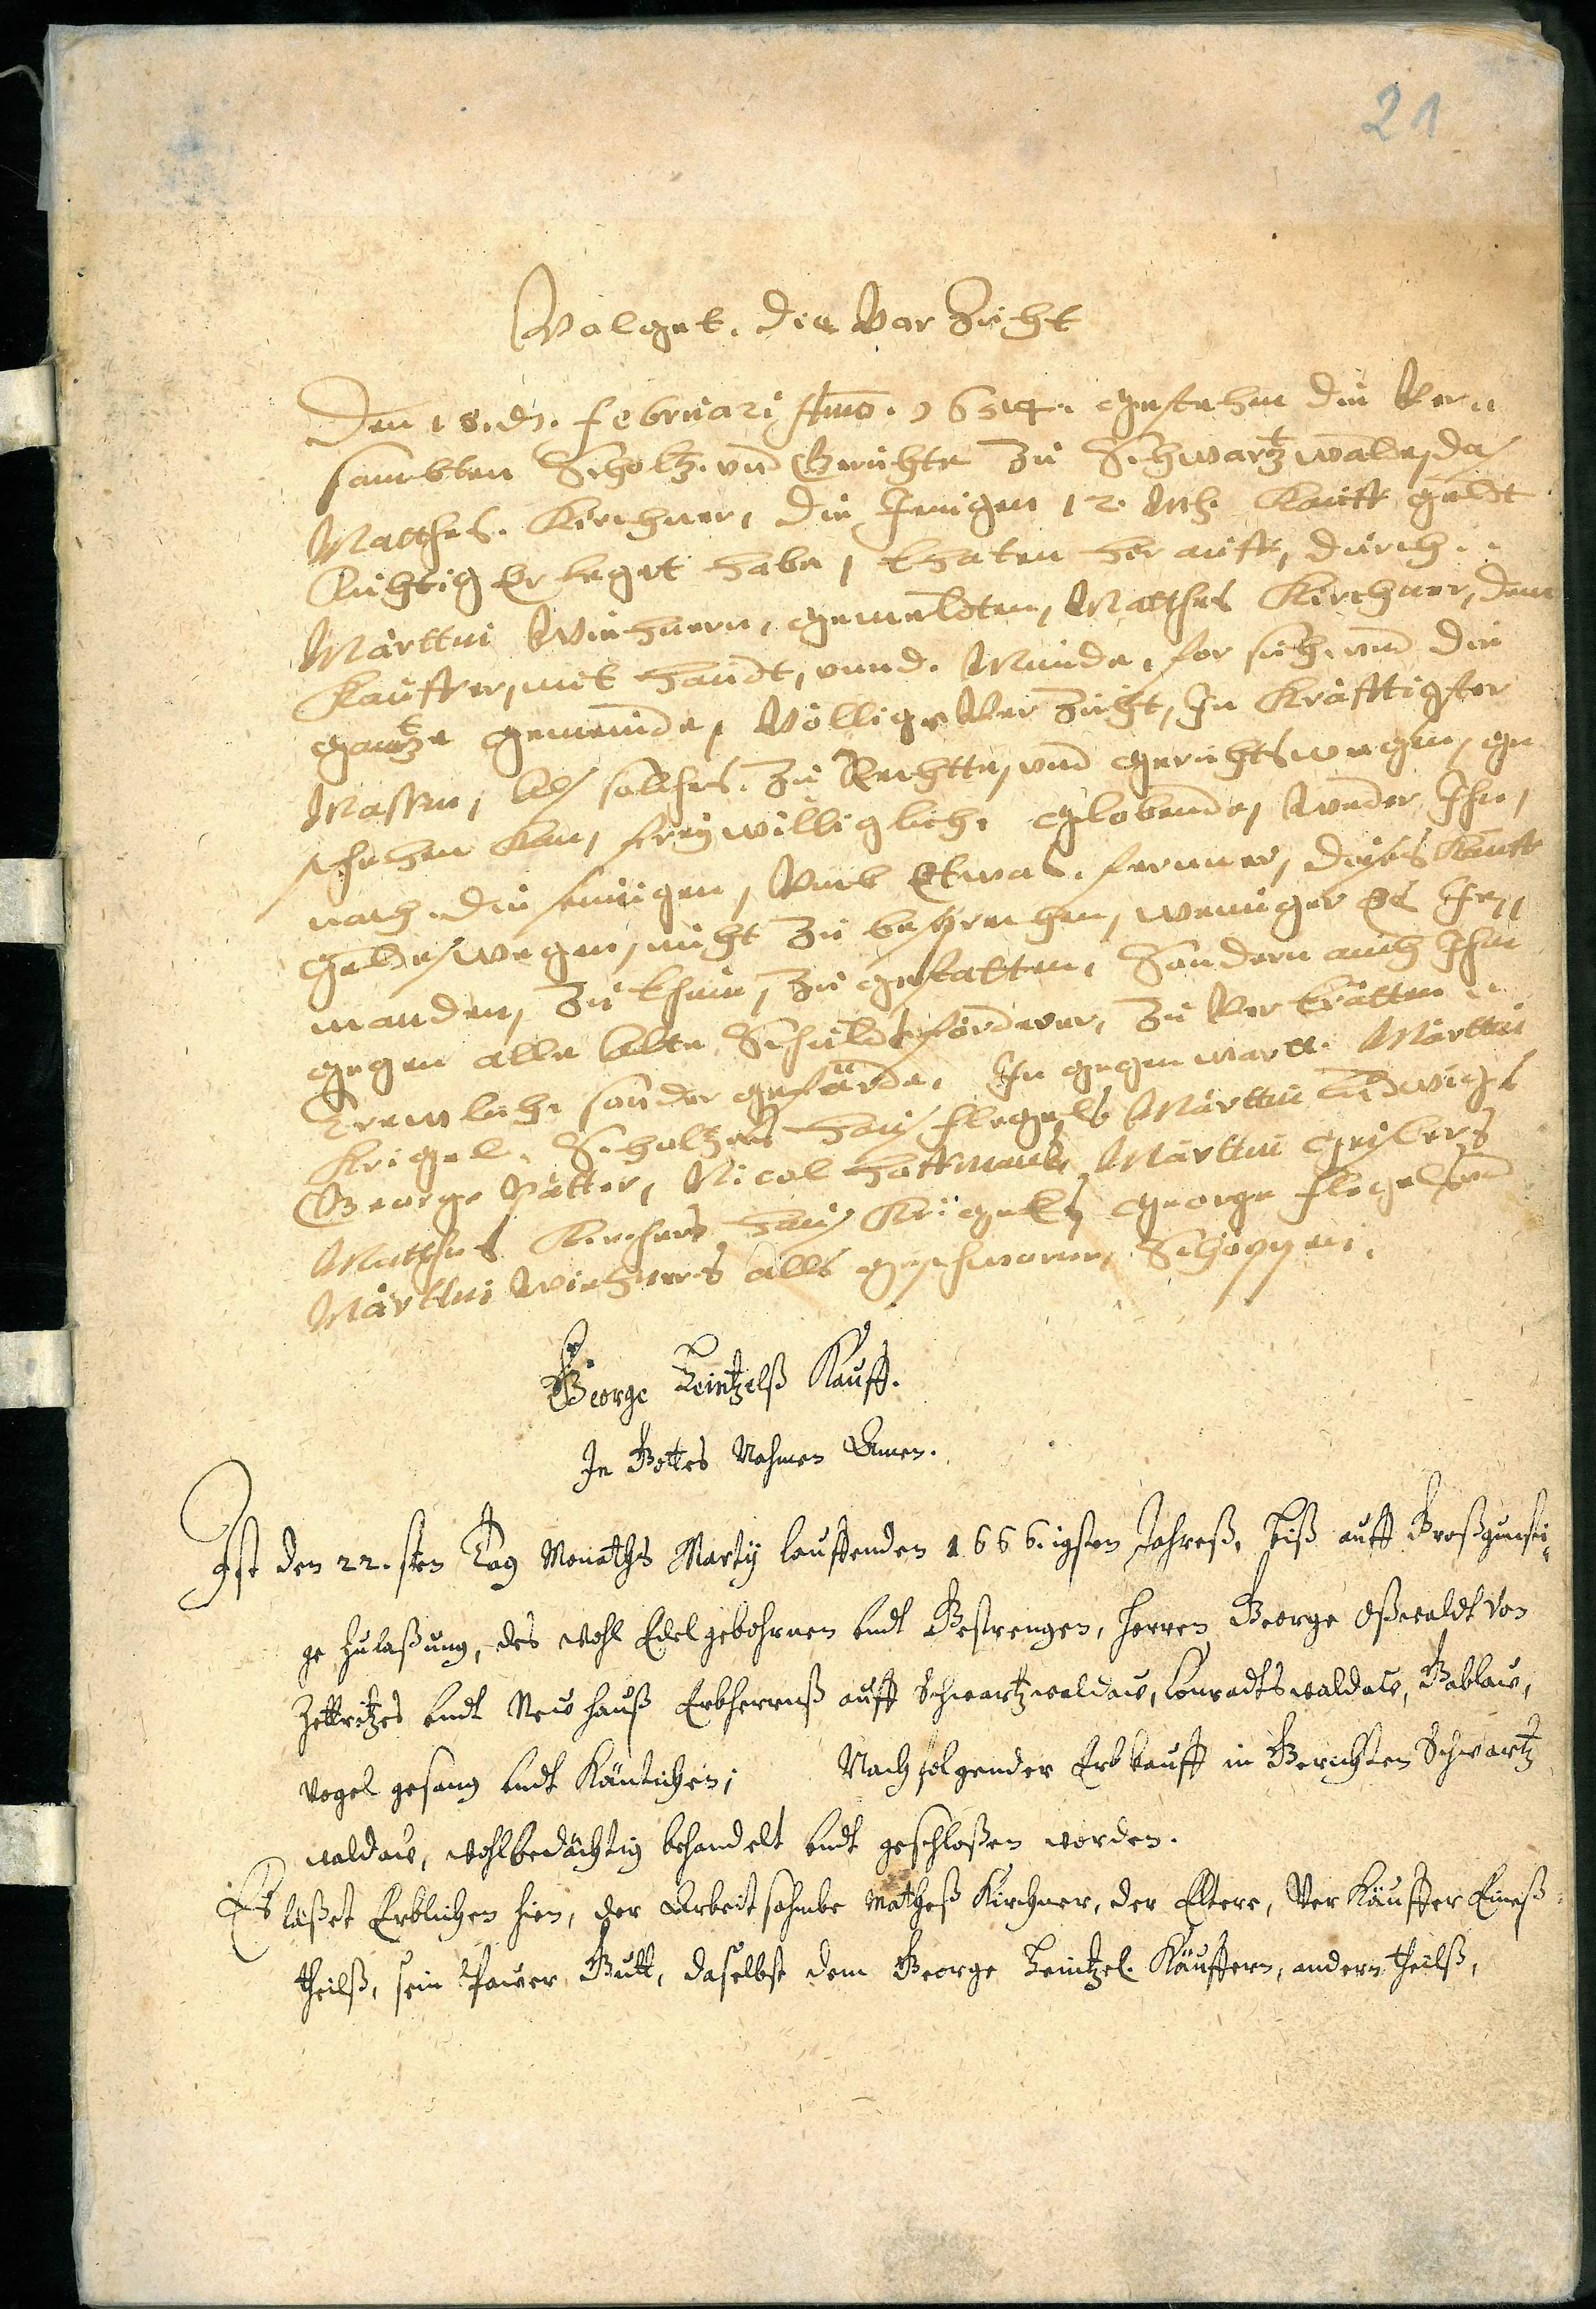 21
Volget. die Vor Zücht
Den 18. dt. februari Anno. 1654. gestehen die Ver„
sambten Scholtz. und Gerichte zu Schwartzwalde, das
Matthes. Kirchner, die Jenigen 12. Mk. Kauff geldt
Richtig Erleget habe, thaten her auff, durch..
Märtten Wiehnern, gemeldten, Matthes Kirchner, dem
Kauffer, mit Handt, unnd. Munde, for sich. und die
gantze gemeinde, Völlige Ver Zücht, In Kräfftigster
Massen, als solches. zu Rechtte, und gerichtswegen, ge
schehen kan, freÿwilliglich, globende, weder Ihn,
nach. die seinigen, Umb Etwas. ferner, dieses Kauff
geldes wegen, nicht zu besprechen, weniger es Je„
manden, zu thun, zu gestatten, Sondern auch Ihn
gegen alle alte Schuldt förderer, zu Ver trätten„
Trewlich. sonder gefärde, In gegenwart. Märtten
Krigel, Scholtzens Hans flegels Märtten Ludwigs
George Pätter, Nicol Hoffmans, Märtten Geislers
Matthes Kirchners Hans Krügels George flegels und
Märtten Wiehners alls geschworne, Schöppen.
George Teintzelß Kauff.
In Gottes Nahmen Amen.
Ist den 22. sten Tag Monaths Martÿ lauffenden 1666.igsten Jahreß, biß auff Großgünsti„
ge zulaßung, des wohl Edelgebohrnen undt Gestrengen, Herren George Oßwaldt von
Zettritzes undt Newhauß Erbherrnß auff Schwartzwaldaw, Conradtswaldaw, Gablaw,
Vogel gesang undt Käntichen; Nachfolgender Erbkauff in Gerichten Schwartz
waldaw, wohlbedächtig behandelt undt geschloßen worden.
Es läßet Erblichen hien, der Arbeitsahmbe Matheß Kirchner, der Eltere, Verkäuffer Eineß
theilß, sein Pawer Gutt, daselbst dem George Teintzel. Käuffern, andern theilß,